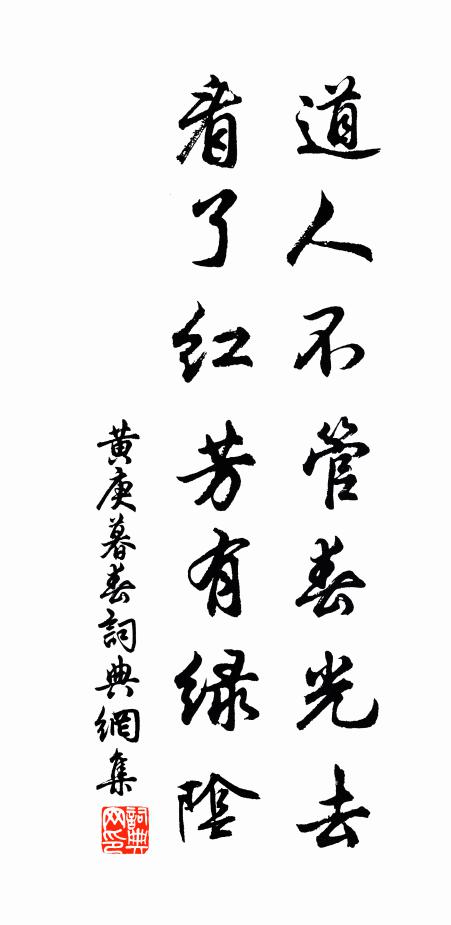 道人不管春光去
看了红芳有绿陰
黄庚暮春詞典網集
詞典网印